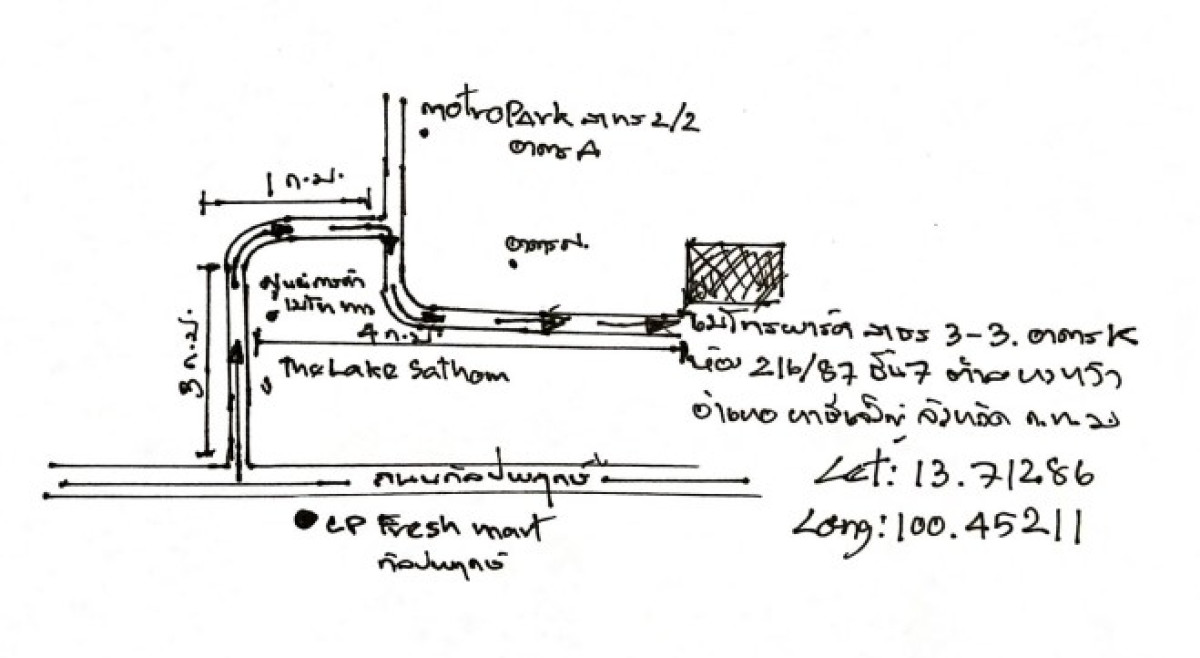 MotroPark สาทร 2/2
อาคาร A
1 ก.ม.
อาคาร
ศูนย์การค้า
3 ก.ม.
4 ก.ม.
The Lake Sathorn
เมโทรพาร์ค สาธร 3-3. อาคาร K
ห้อง 216/87 ชั้น 7 ตำบล บางหว้า
อำเภอ ภาษีเจริญ จังหวัด ก.ท.ม
Lat: 13.71286
Long: 100.45211
ถนนกัลปพฤกษ์
CP Fresh mart
กัลปพฤกษ์